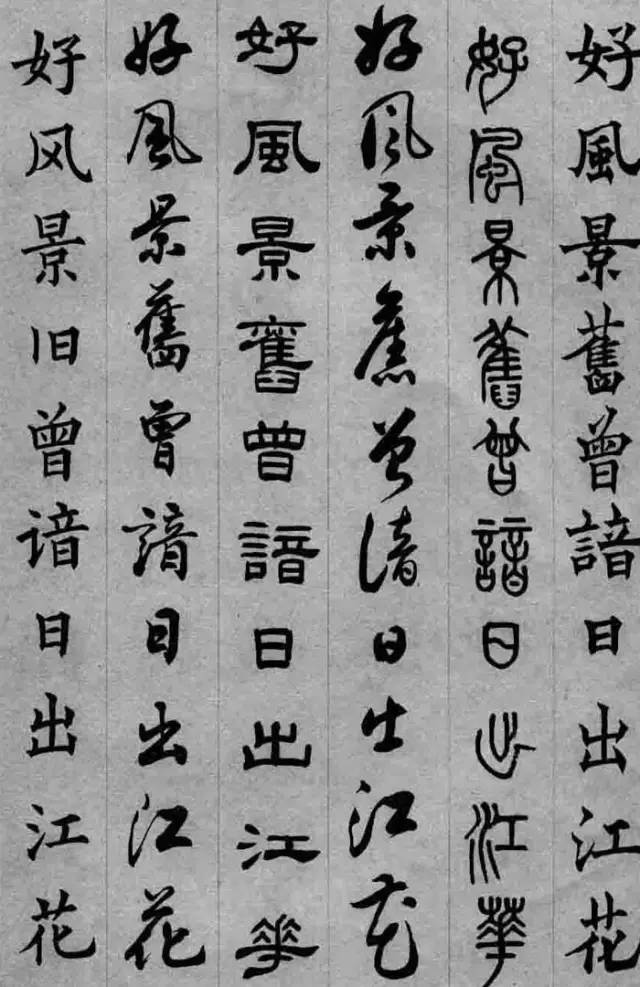 好風景舊曾諳日出江花
好風景舊曾諳日出江華
好風景舊曾諳日出江花
好風景舊曾諳日出江華
好風景舊曾諳日出江花
好风景旧曾谙日出江花